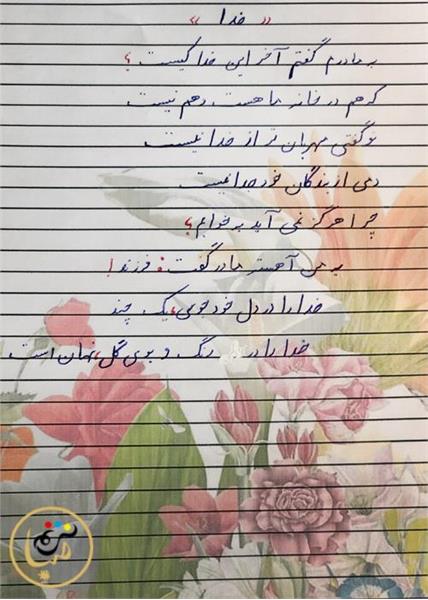 « خدا »
به مادرم گفتم آخر این خدا کیست ؟
که هم در خانه ما هست و هم نیست
تو گفتی مهربان تر از خدا نیست
دمی از بندگان خود جدا نیست
چرا هرگز نمی آید به خوابم ؟
به من آهسته مادر گفت : فرزند !
خدا را در دل خود جوی ، یک چند
خدا را در رنگ و بوی گل نهان است